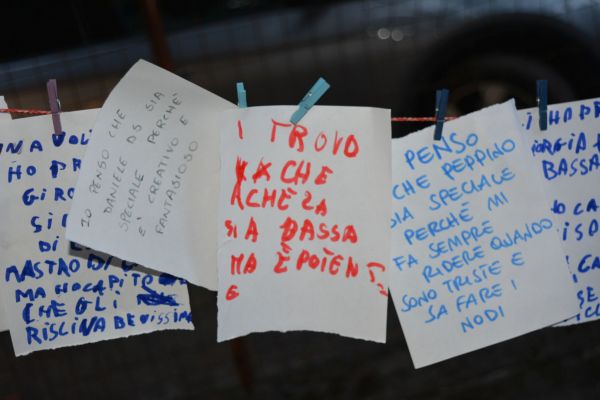 UNA VOL
HO PR
GIRO
SI
DI
MASTRO DI
MA HO CAPITO
CHE GLI
RISCINA BENISSIMA
IO PENSO CHE
DANIELE DS SIA
SPECIALE PERCHÈ
E' CREATIVO E
FANTASIOSO
I TROVO
CHE
CHEZA
SIA BASSA
MA È POTENT
E
PENSO
CHE PEPPINO
SIA SPECIALE
PERCHÉ MI
FA SEMPRE
RIDERE QUANDO
SONO TRISTE E
SA FARE I
NODI
HO P
ORGIA
BASSA